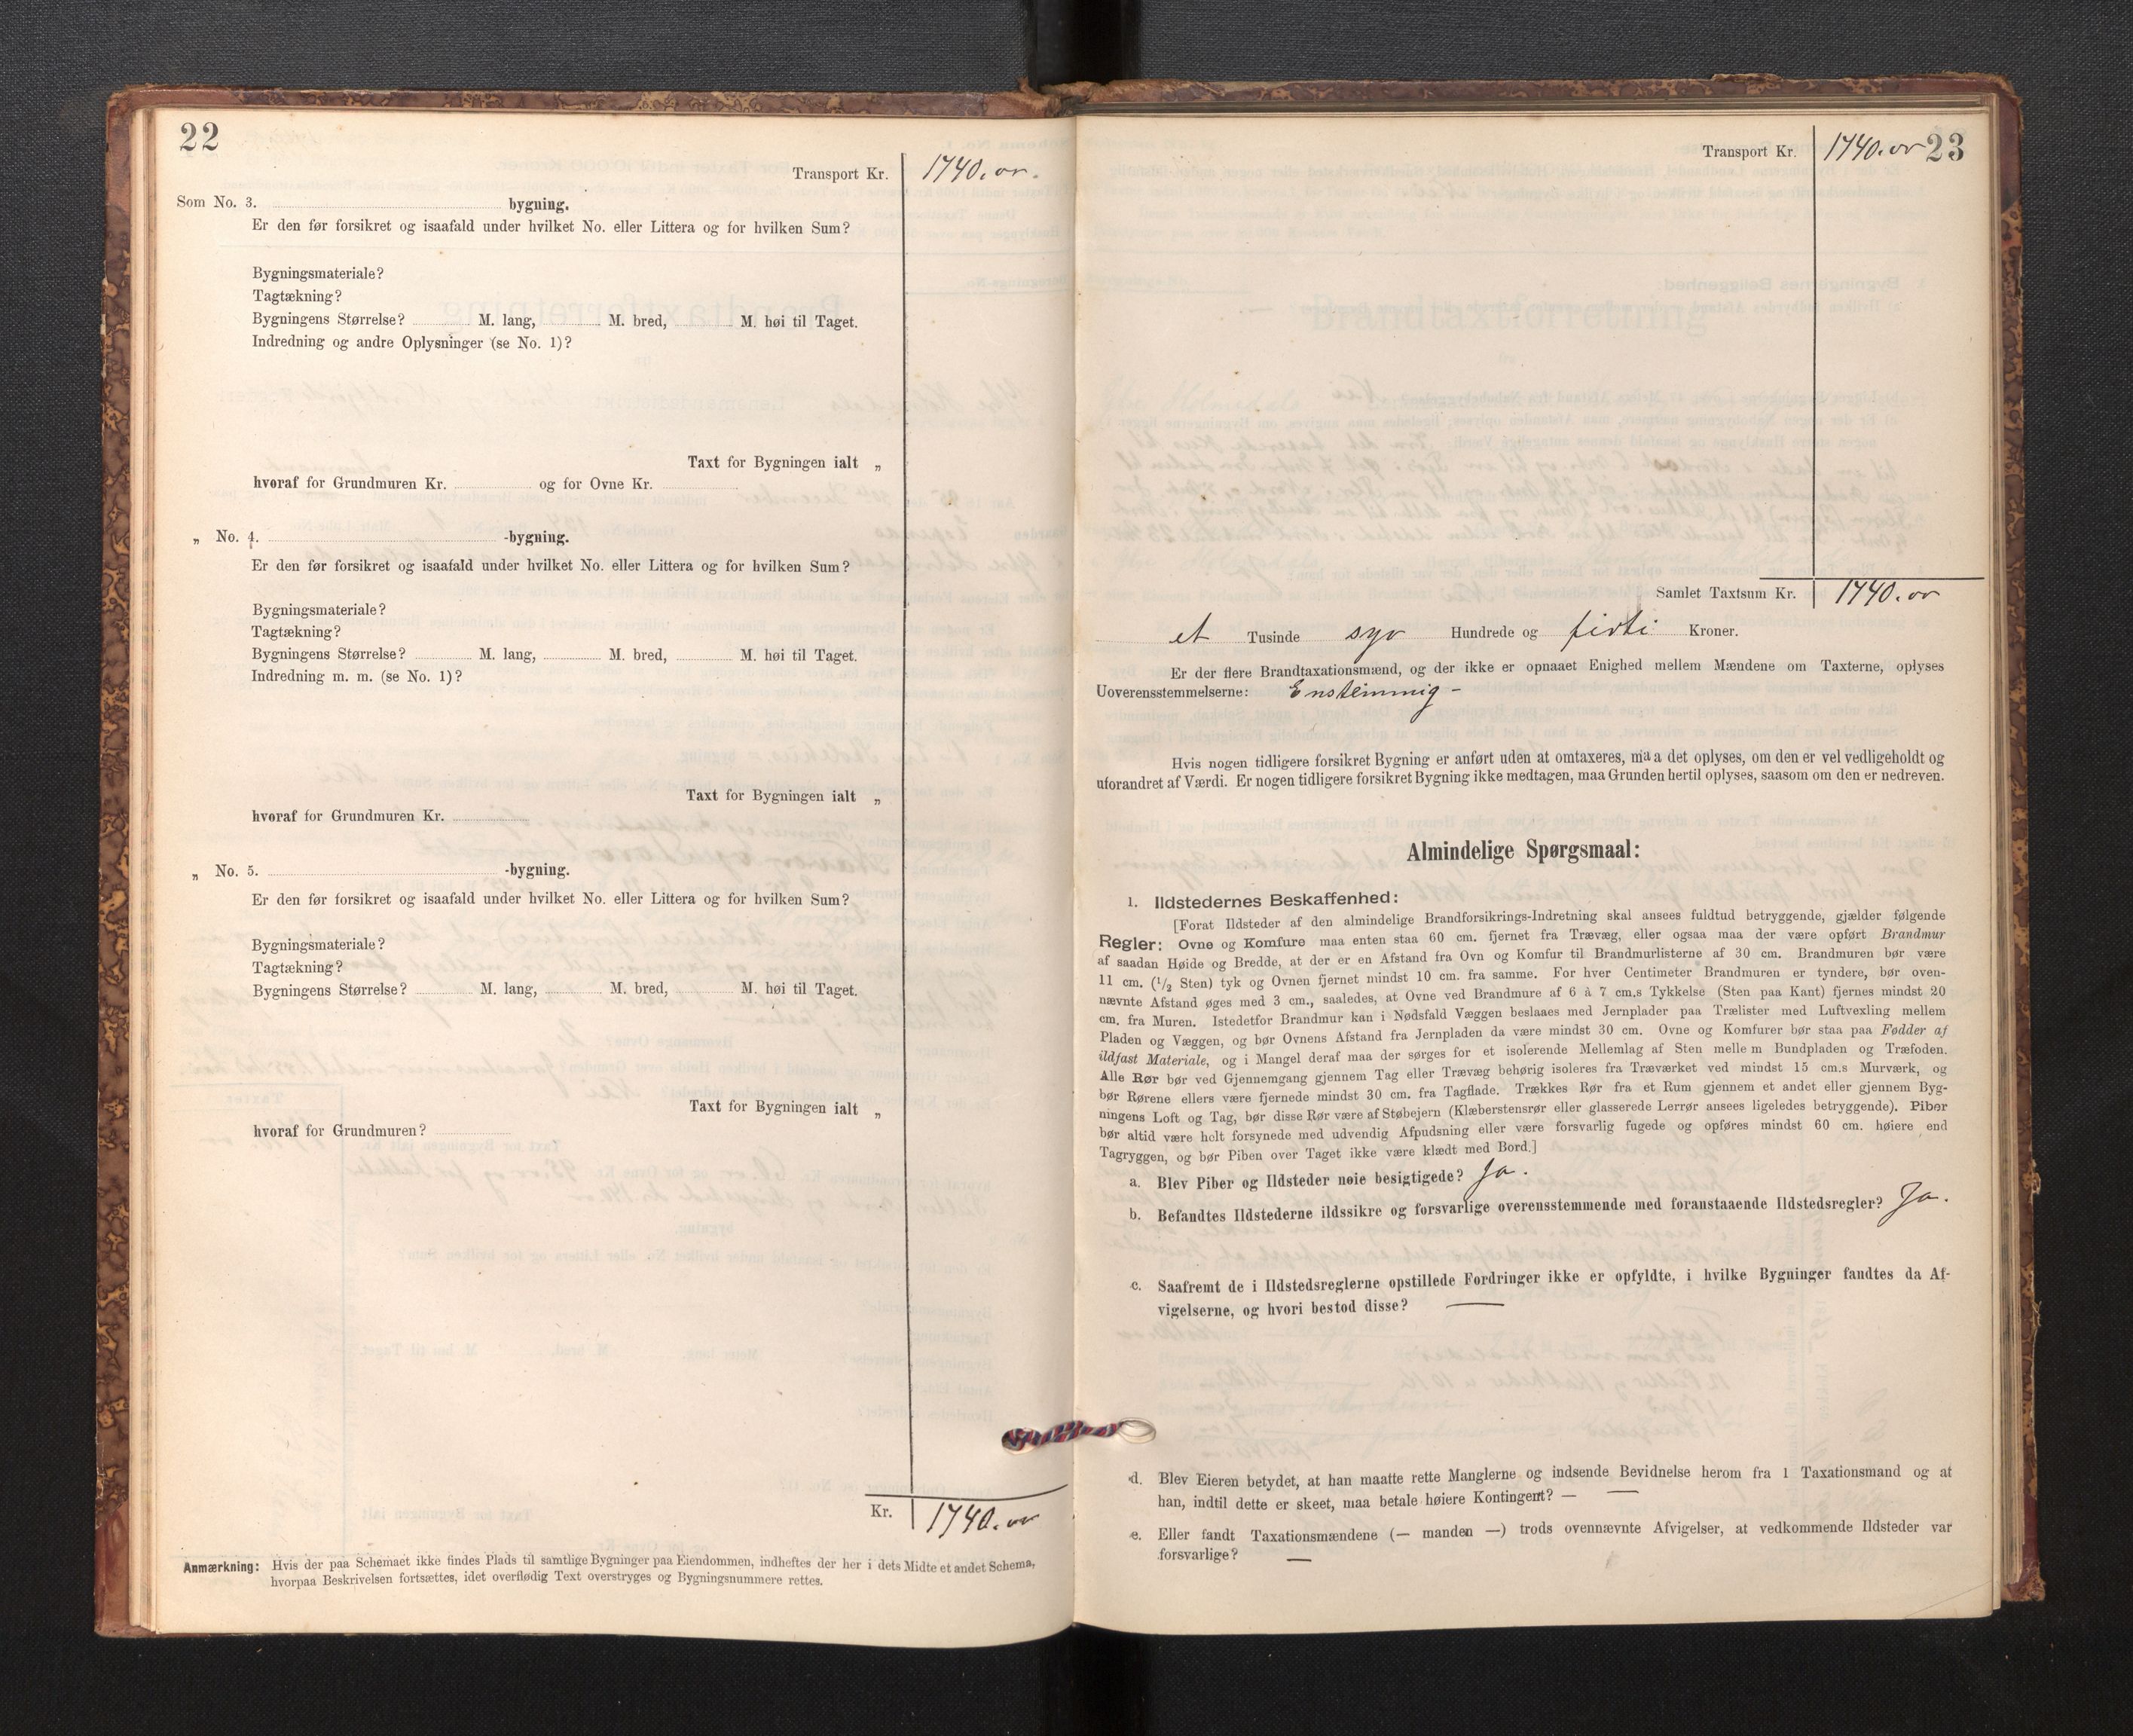 22
Transport Kr. 1740.00.
Som No. 3. bygning.
Er den før forsikret og isaafald under hvilket No. eller Littera og for hvilken Sum?
Bygningsmateriale?
Tagtækning?
Bygningens Størrelse? M. lang, M. bred, M. høi til Taget.
Indredning og andre Oplysninger (se No. 1)?
Taxt for Bygningen ialt „
hvoraf for Grundmuren Kr. og for Ovne Kr.
„ No. 4. -bygning.
Er den før forsikret og isaafald under hvilket No. eller Littera og for hvilken Sum?
Bygningsmateriale?
Tagtækning?
Bygningens Størrelse? M. lang, M. bred, M. høi til Taget.
Indredning m. m. (se No. 1)?
Taxt for Bygningen ialt „
hvoraf for Grundmuren Kr.
„ No. 5. -bygning.
Er den før forsikret og isaafald under hvilket No. eller Littera og for hvilken Sum?
Bygningsmateriale?
Tagtækning?
Bygningens Størrelse? M. lang, M. bred, M. høi til Taget.
Taxt for Bygningen ialt „
hvoraf for Grundmuren?
Kr. 1740.00
Anmærkning: Hvis der paa Schemaet ikke findes Plads til samtlige Bygninger paa Eiendommen, indheftes der her i dets Midte et andet Schema,
hvorpaa Beskrivelsen fortsættes, idet overflødig Text overstryges og Bygningsnummere rettes.
Transport Kr. 1740.00 23
Samlet Taxtsum Kr. 1740.00
et Tusinde syv Hundrede og firti Kroner.
Er der flere Brandtaxationsmænd, og der ikke er opnaaet Enighed mellem Mændene om Taxterne, oplyses
Uoverensstemmelserne: Enstemmig –
Hvis nogen tidligere forsikret Bygning er anført uden at omtaxeres, maa det oplyses, om den er vel vedligeholdt og
uforandret af Værdi. Er nogen tidligere forsikret Bygning ikke medtagen, maa Grunden hertil oplyses, saasom om den er nedreven.
Almindelige Spørgsmaal:
1. Ildstedernes Beskaffenhed:
[Forat Ildsteder af den almindelige Brandforsikrings-Indretning skal ansees fuldtud betryggende, gjælder følgende
Regler: Ovne og Komfure maa enten staa 60 cm. fjernet fra Trævæg, eller ogsaa maa der være opført Brandmur
af saadan Høide og Bredde, at der er en Afstand fra Ovn og Komfur til Brandmurlisterne af 30 cm. Brandmuren bør være
11 cm. (1/2 Sten) tyk og Ovnen fjernet mindst 10 cm. fra samme. For hver Centimeter Brandmuren er tyndere, bør oven-
nævnte Afstand øges med 3 cm., saaledes, at Ovne ved Brandmure af 6 à 7 cm.s Tykkelse (Sten paa Kant) fjernes mindst 20
cm. fra Muren. Istedetfor Brandmur kan i Nødsfald Væggen beslaaes med Jernplader paa Trælister med Luftvexling mellem
Pladen og Væggen, og bør Ovnens Afstand fra Jernpladen da være mindst 30 cm. Ovne og Komfurer bør staa paa Fødder af
ildfast Materiale, og i Mangel deraf maa der sørges for et isolerende Mellemlag af Sten mellem Bundpladen og Træfoden.
Alle Rør bør ved Gjennemgang gjennem Tag eller Trævæg behørig isoleres fra Træværket ved mindst 15 cm.s Murværk, og
bør Rørene ellers være fjernede mindst 30 cm. fra Tagflade. Trækkes Rør fra et Rum gjennem et andet eller gjennem Byg-
ningens Loft og Tag, bør disse Rør være af Støbejern (Klæberstensrør eller glasserede Lerrør ansees ligeledes betryggende). Piber
bør altid være helt forsynede med udvendig Afpudsning eller være forsvarlig fugede og opføres mindst 60 cm. høiere end
Tagryggen, og bør Piben over Taget ikke være klædt med Bord.]
a. Blev Piber og Ildsteder nøie besigtigede? Ja.
b. Befandtes Ildstederne ildssikre og forsvarlige overensstemmende med foranstaaende Ildstedsregler? Ja.
c. Saafremt de i Ildstedsreglerne opstillede Fordringer ikke er opfyldte, i hvilke Bygninger fandtes da Af-
vigelserne, og hvori bestod disse? —
d. Blev Eieren betydet, at han maatte rette Manglerne og indsende Bevidnelse herom fra 1 Taxationsmand og at
han, indtil dette er skeet, maa betale høiere Kontingent? — —
e. Eller fandt Taxationsmændene (— manden —) trods ovennævnte Afvigelser, at vedkommende Ildsteder var
forsvarlige? —